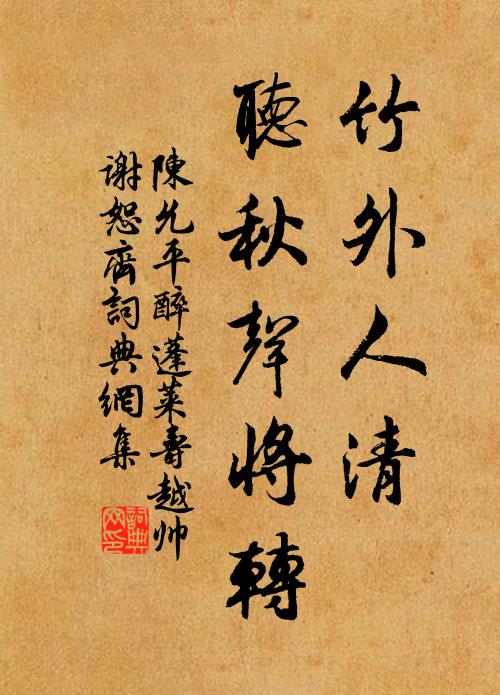 竹外人清
聽秋聲將轉
陳允平醉蓬萊壽越帅
谢恕齋詞典網集
詞典